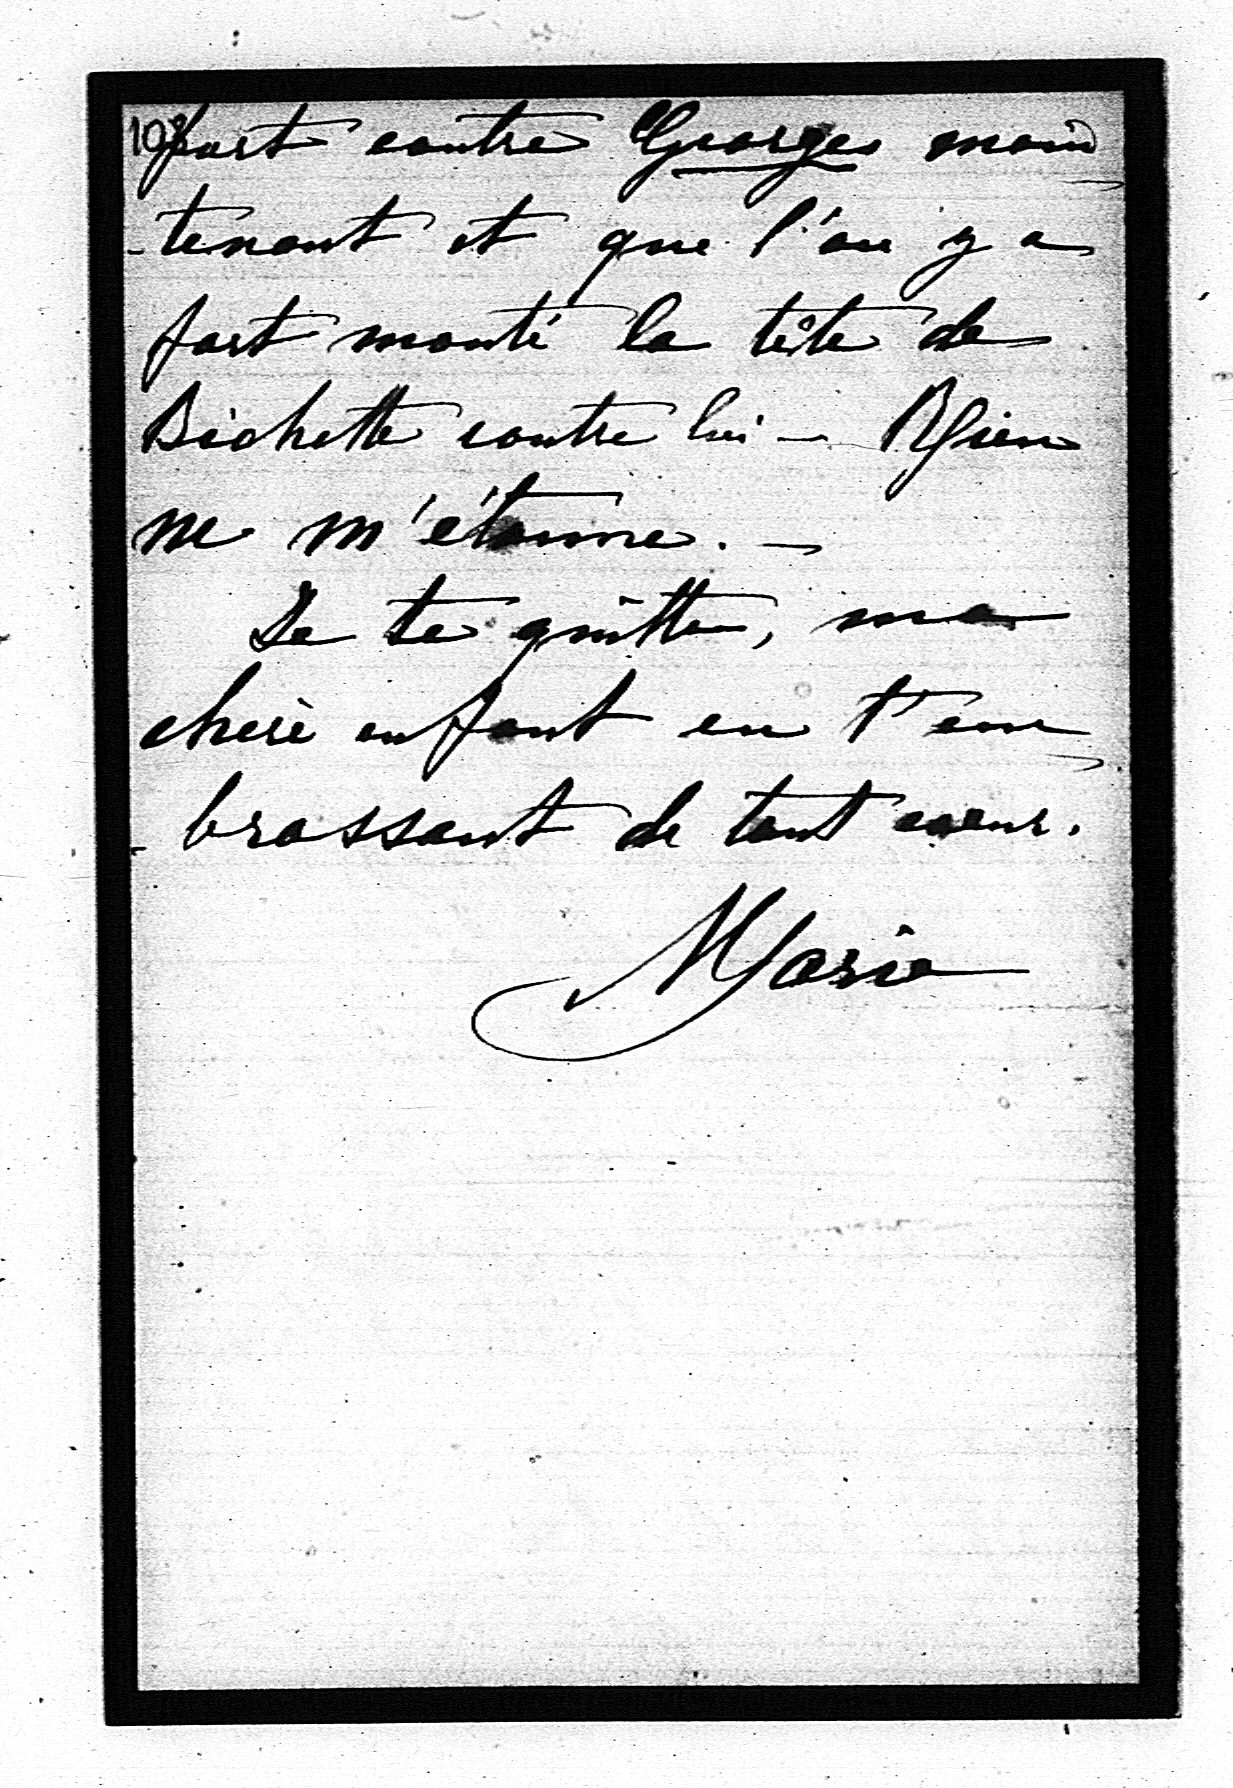 108
fort contre Georges main
-tenant et que l'on y a
fort monté la tête de
Bichette contre lui — Rien
ne m'étonne. —
Je te quitte, ma
cherè enfant en t'em
-brassant de tout coeur.
Marie